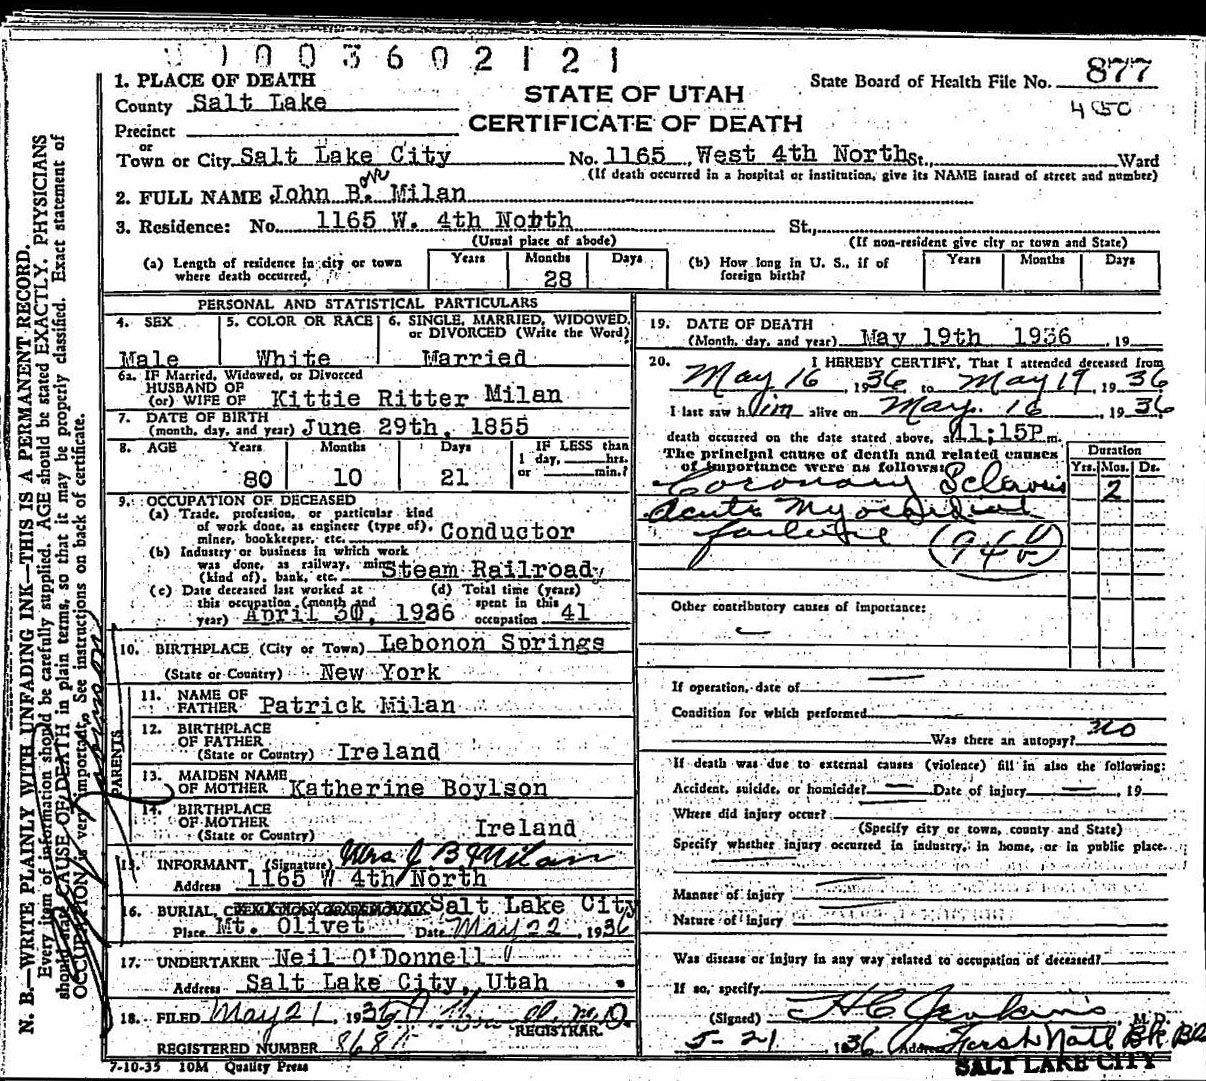 1003602121
1. PLACE OF DEATH
County Salt Lake
STATE OF UTAH
State Board of Health File No. 877
450
Precinct
CERTIFICATE OF DEATH
or
Town or City Salt Lake City No. 1165 West 4th North St., Ward
(If death occurred in a hospital or institution, give its NAME insead of street and number)
2. FULL NAME John B. Milan
3. Residence: No. 1165 W. 4th North St.,
(Usual place of abode) (If non-resident give city or town and State)
(a) Length of residence in city or town where death occurred. Years Months 28 Days
(b) How long in U. S., if of foreign birth? Years Months Days
PERSONAL AND STATISTICAL PARTICULARS
4. SEX 5. COLOR OR RACE 6. SINGLE, MARRIED, WIDOWED, or DIVORCED (Write the Word)
Male White Married
6a. IF Married, Widowed, or Divorced
HUSBAND OF
(or) WIFE OF Kittie Ritter Milan
7. DATE OF BIRTH
(month, day, and year) June 29th, 1855
8. AGE Years Months Days IF LESS than
1 day, hrs.
80 10 21 or min.?
9. OCCUPATION OF DECEASED
(a) Trade, profession, or particular kind
of work done, as engineer (type of),
miner, bookkeeper, etc. Conductor
(b) Industry or business in which work
was done, as railway, mine
(kind of), bank, etc. Steam Railroad
(c) Date deceased last worked at (d) Total time (years)
this occupation (month and spent in this
year) April 30, 1926 occupation 41
10. BIRTHPLACE (City or Town) Lebonon Springs
(State or Country) New York
PARENTS
11. NAME OF
FATHER Patrick Milan
12. BIRTHPLACE
OF FATHER
(State or Country) Ireland
13. MAIDEN NAME
OF MOTHER Katherine Boylson
14. BIRTHPLACE
OF MOTHER
(State or Country) Ireland
15. INFORMANT (Signature) Mrs J B Milan
Address 1165 W 4th North
16. BURIAL, CREMATION OR REMOVAL Salt Lake City
Place Mt. Olivet Date May 22, 1936
17. UNDERTAKER Neil O'Donnell
Address Salt Lake City, Utah
18. FILED May 21, 1936 M.D.
REGISTRAR.
REGISTERED NUMBER 868
7-10-35 10M Quality Press
19. DATE OF DEATH
(Month, day, and year) May 19th 1936, 19
20. I HEREBY CERTIFY, That I attended deceased from
May 16, 1936 to May 19, 1936
I last saw him alive on May 16, 1936
death occurred on the date stated above, at 11:15P m.
The principal cause of death and related causes
of importance were as follows:
Duration
Yrs. Mos. Ds.
Coronary Sclerosis 2
Acute Myocardial
failure (94b)
Other contributory causes of importance:
If operation, date of
Condition for which performed
Was there an autopsy? no
If death was due to external causes (violence) fill in also the following:
Accident, suicide, or homicide? Date of injury , 19
Where did injury occur?
(Specify city or town, county and State)
Specify whether injury occurred in industry, in home, or in public place.
Manner of injury
Nature of injury
Was disease or injury in any way related to occupation of deceased?
If so, specify
(Signed) H C Jenkins M. D.
5-21 1936 Address First Natl Bk Bld
SALT LAKE CITY
N. B.—WRITE PLAINLY WITH UNFADING INK—THIS IS A PERMANENT RECORD.
Every item of information should be carefully supplied. AGE should be stated EXACTLY. PHYSICIANS
should state CAUSE OF DEATH in plain terms, so that it may be properly classified. Exact statement of
OCCUPATION is very important. See instructions on back of certificate.